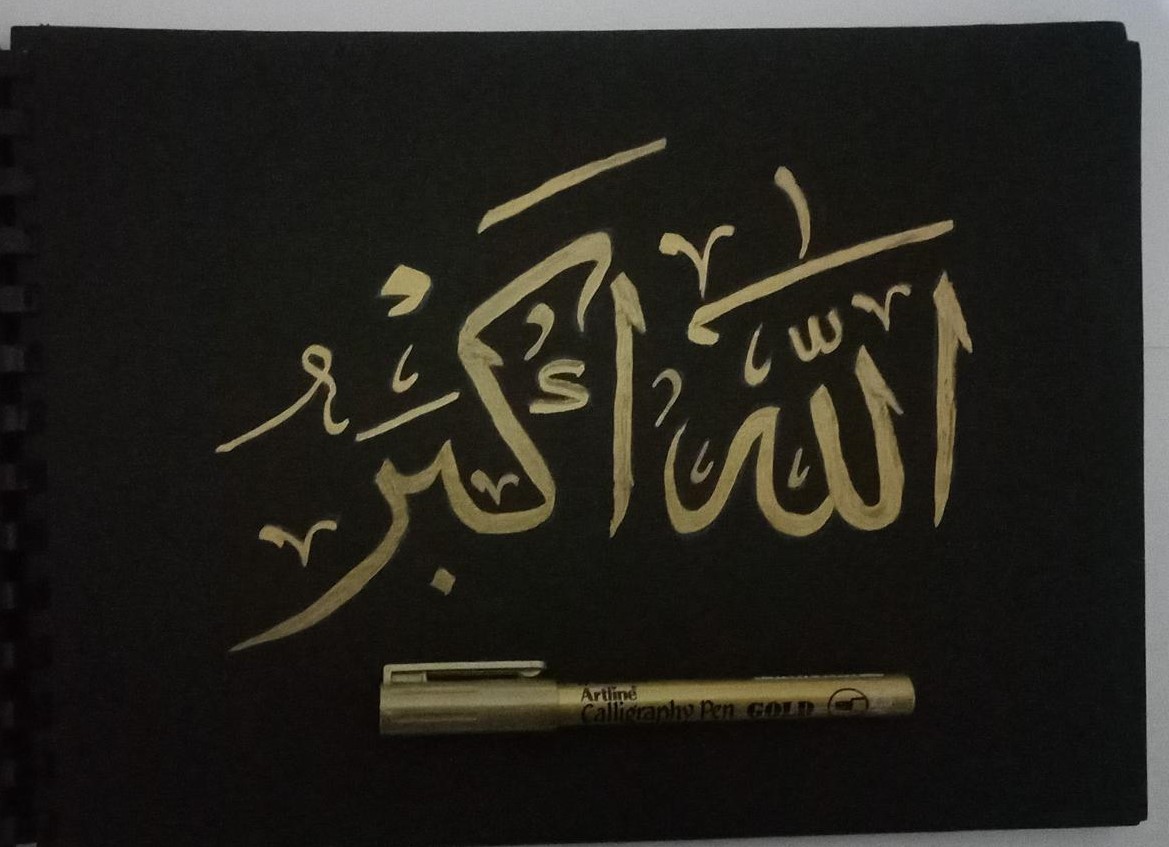 الله أكبر
Artline
Calligraphy Pen GOLD